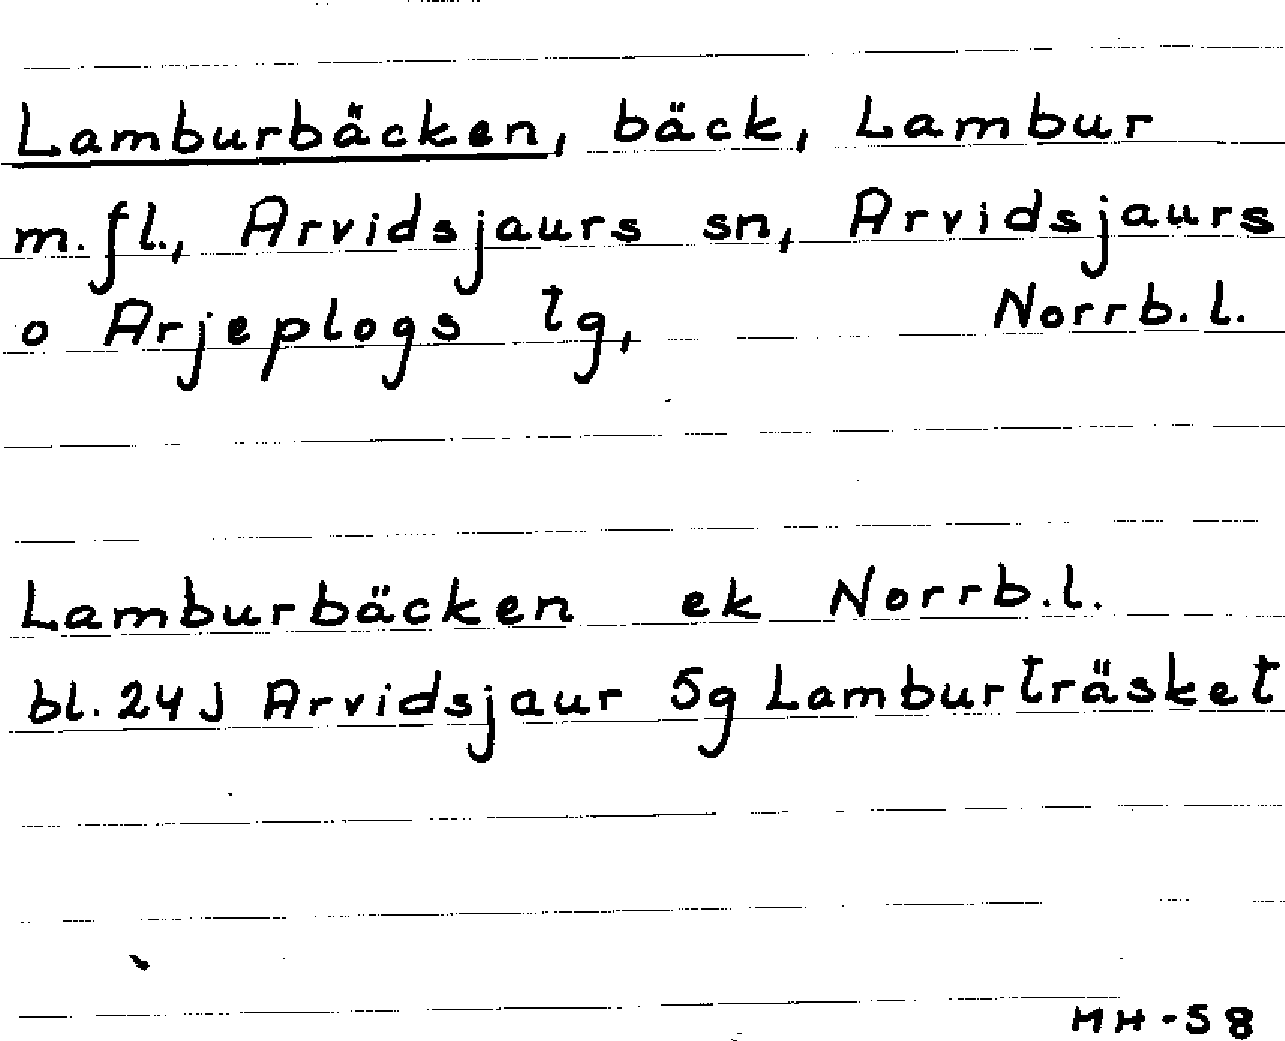 Lamburbäcken, bäck, Lambur
m.fl., Arvidsjaurs sn, Arvidsjaurs
o Arjeplogs tg, Norrb.l.
Lamburbäcken ek Norrb.l.
bl. 24 J Arvidsjaur 5g Lamburträsket
MH-58